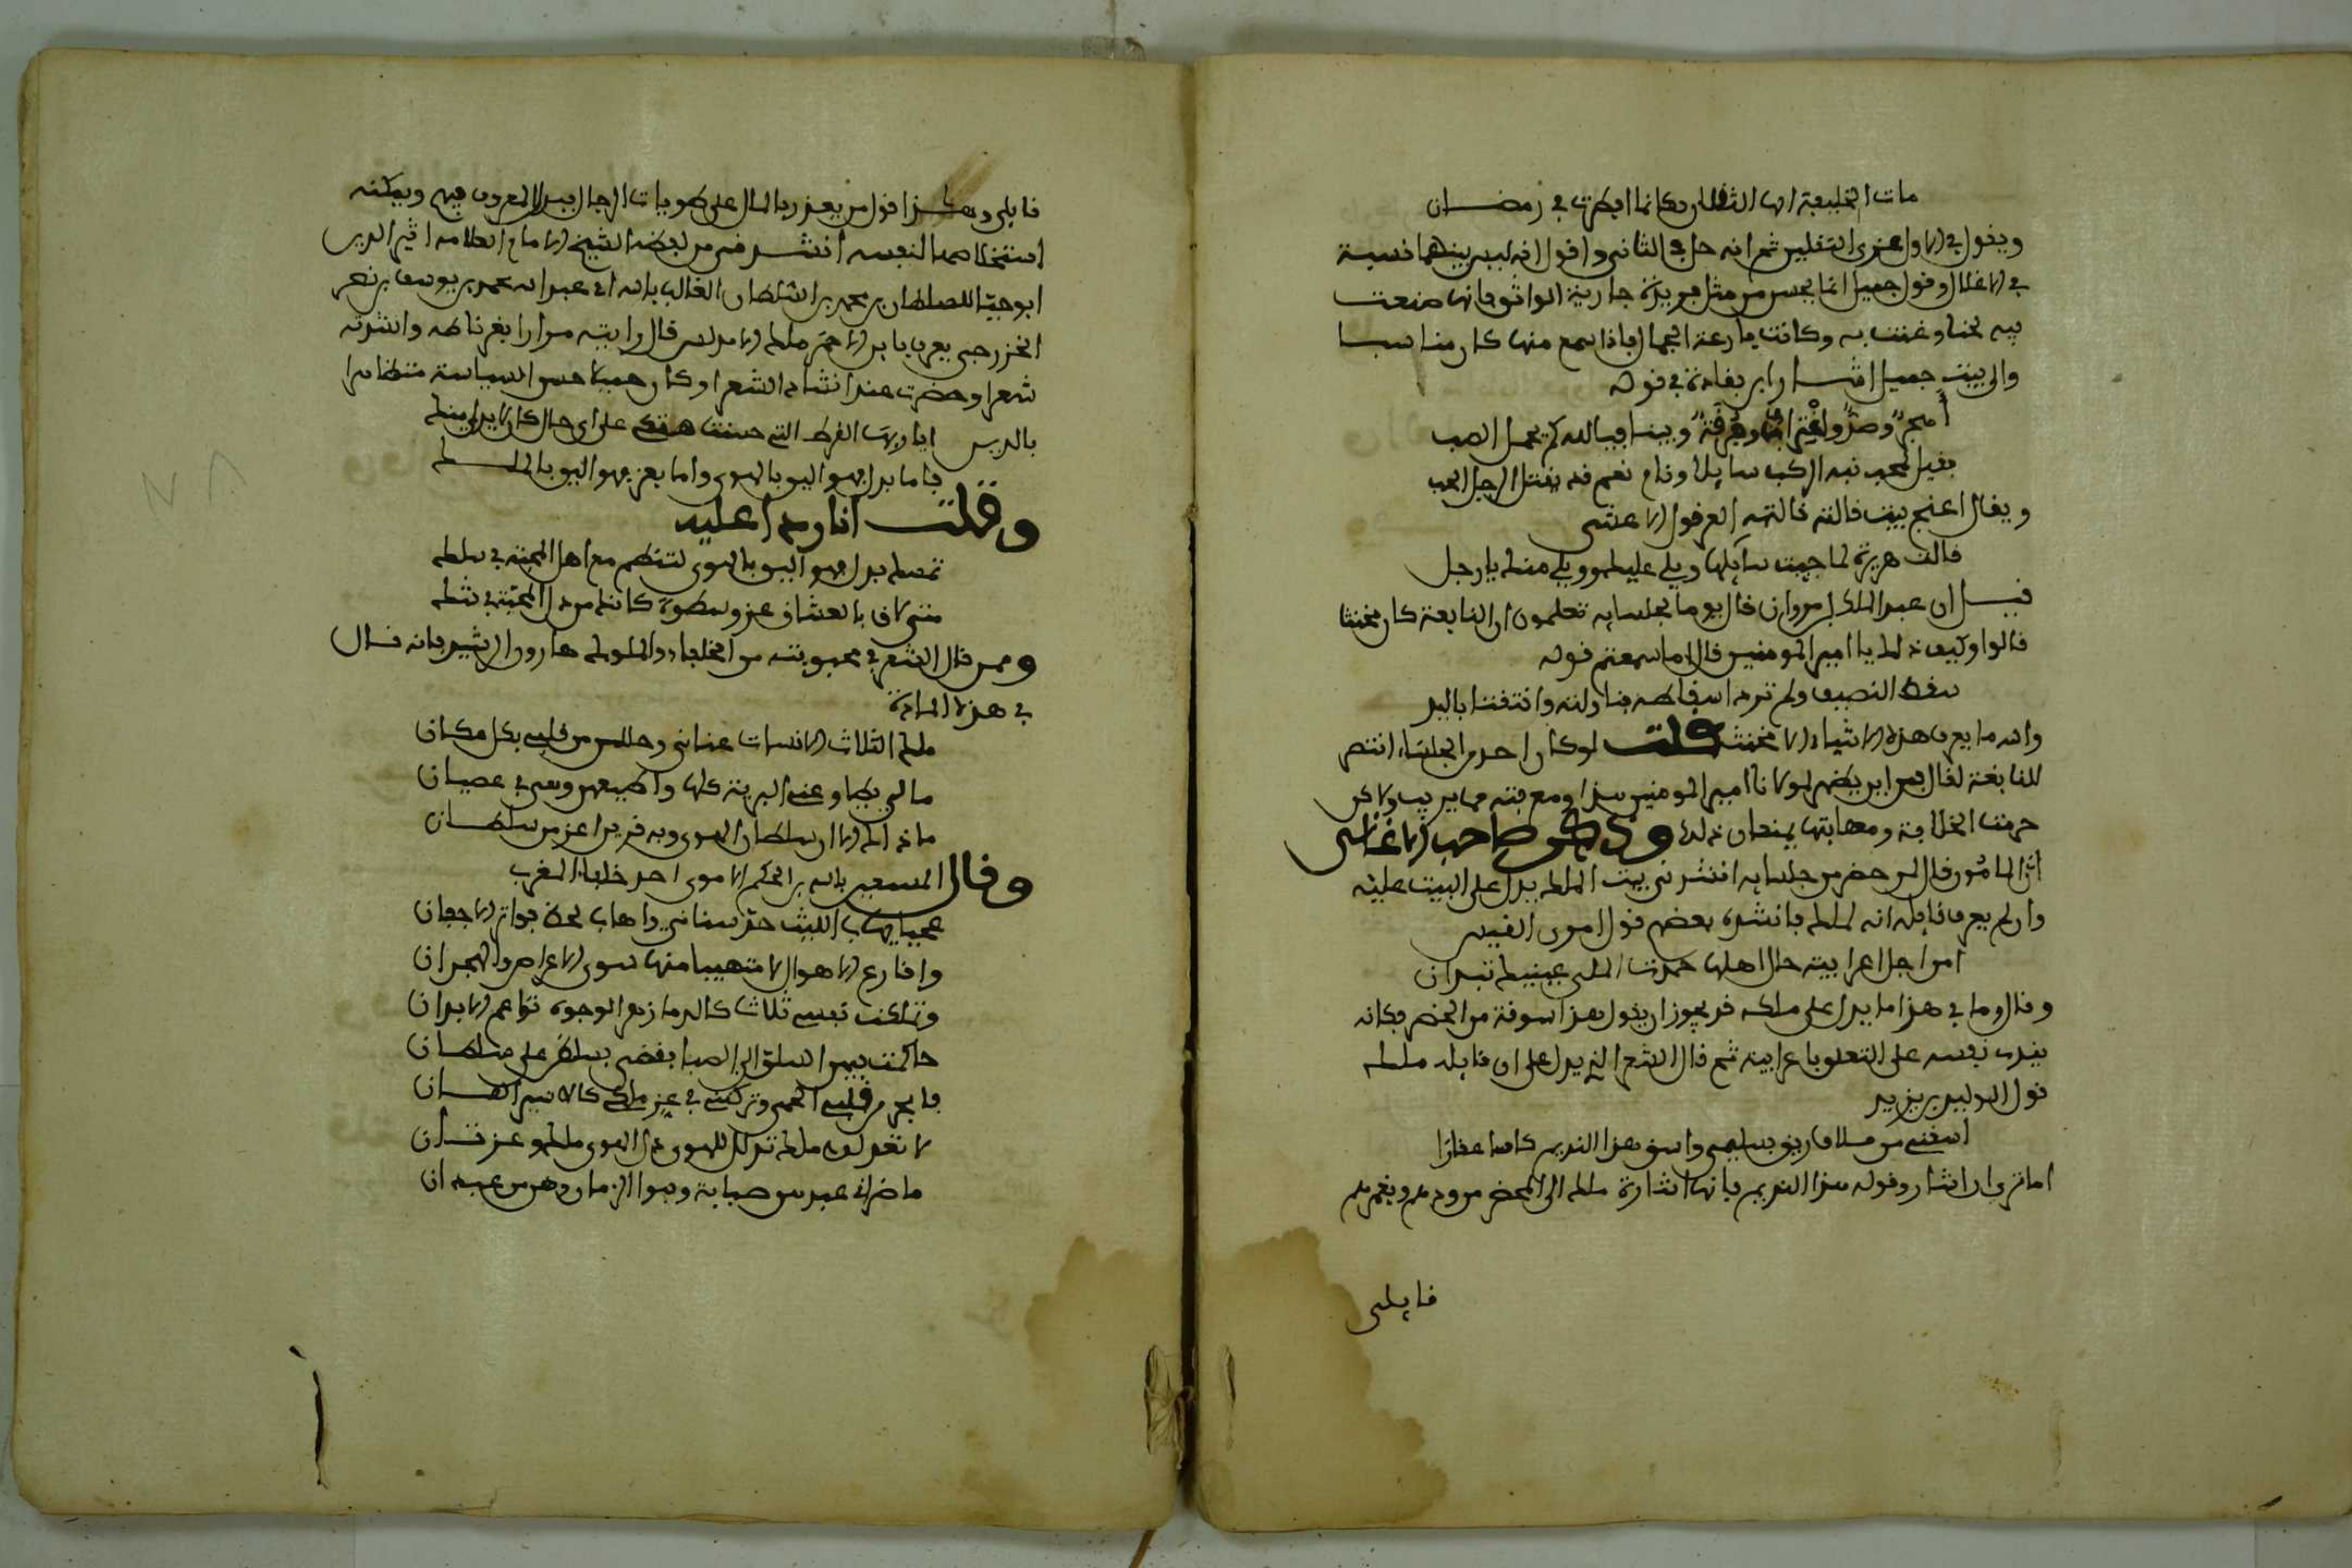 مات الخليفة ايها الثقلان فكانما افطرت في رمضان
ويقول في الاول نعى الى الثقلين ثم انه حل في الثاني واقول انه ليس بينهما نسبة
في الاغفال وقول جميل انما يحسن من مثل فريدة جارية الواثق فانها صنعت
فيه لحنا وغنت به وكانت بارعة الجمال فاذا سمع منها كان مناسبا
والى بيت جميل اشار ابن بقادة في قوله
اهجر وصد واغتراب وفرقة وبين فيالله كم يحمل الصب
بقيل المحب نبه الركب سايلا ونام نعم قد يقتل الرجل الحب
ويقال اغنج بيت قالته قالته العرب قول الاعشى
قالت هريرة لما جيت سايلها ويلي عليك وويلي منك يا رجل
قيل ان عبد الملك بن مروان قال يوما لجلسايه تعلمون ان النابغة كان مخنثا
قالوا وكيف ذلك يا امير المومنين قال اما سمعتم قوله
سقط النصيف ولم ترد اسقاطه فتناولته واتقتنا باليد
والله ما يعرف هذه الاشياء الا مخنث قلت لو كان احد من الجلساء انتصر
للنابغة لقال فمن اين يظهر لمولانا امير المومنين هذا ومعرفته مما يريب ولاكن
حرمت الخلافة ومهابتها يمنعان ذلك وذكر صاحب الاغاني
ان المامون قال لمن حضر من جلسايه انشدني بيت الملك يدل على البيت عليه
وان لم يعرف قايله انه لملك فانشده بعضهم قول امرئ القيس
امن اجل اعرابية حل اهلها حمت الملى عينيك تبدران
وقال وما في هذا ما يدل على ملكه قد يجوز ان يقول هذا سوقة من الحضر فكانه
يندب نفسه على التعلق باعرابية ثم قال الشعر الذي يدل على ان قايله ملك
قول الوليد بن يزيد
اسقني من سلاف ريق سليمى واسق هذا النديم كاسا عقارا
اما ترى ان اشار وقوله هذا النديم فانها اشارة ملك الى المحضر من ودهم وبغمرهم
قايلى
قايلى وهكذا قول من يعذر بالمال على طويات الرجال يبذل المعروف فيهم ويمكنه
استخلاصها لنفسه انشدني من لفظه الشيخ الامام العلامه اثير الدين
ابو حيان للسلطان بن محمد بن السلطان الغالب بالله ابى عبد الله محمد بن يوسف بن نصر
الخزرجي يعرف بابن الاحمر ملك الاندلس قال رايته مرارا بغرناطه وانشدته
شعرا وحضرت عند انشاد الشعرا وكان جميلا حسن السياسة متظاهرا
بالدين ايا ربة القرط التي حسنت هتكى على اي حال كان لا بد لى منك
فاما بذل وهو اليق بالهوى واما بعز وهو اليق بالملك
وقلت انا ردا عليه
تمسك بذل فهو اليق بالهوى لتنظم مع اهل المحبة في سلك
متى لاق بالعشاق عز وسطوة كانك من ذل المحبة في شك
وممن قال الشعر في محبوبته من الخلفاء والملوك هارون الرشيد فانه قال
في هذه المادة
ملك الثلاث الانسات عناني وحللن من قلبي بكل مكان
ما لي تطاوعني البرية كلها واطيعهن وهن في عصياني
ما ذاك الا ان سلطان الهوى وبه قدرن اعز من سلطاني
وقال المستعين بالله بن الحكم الاموي احد خلفاء المغرب
عجبا يهاب الليث حد سناني واهاب لحظ فواتر الاجفان
واقارع الاهوال لا متهيبا منها سوى الاعراض والهجران
وتملكت نفسي ثلاث كالدما زهر الوجوه نواعم الابدان
حاكمت فيهن السلو الى الصبا فقضى بسلطان على سلطاني
فابحن من قلبي الحمى وتركنني في عز ملكي كالاسير العاني
لا تعذلوا ملكا تذلل للهوى ذل الهوى ملك وعز ثاني
ما ضر اني عبدهن صبابة وبنو الزمان وهن من عبداني